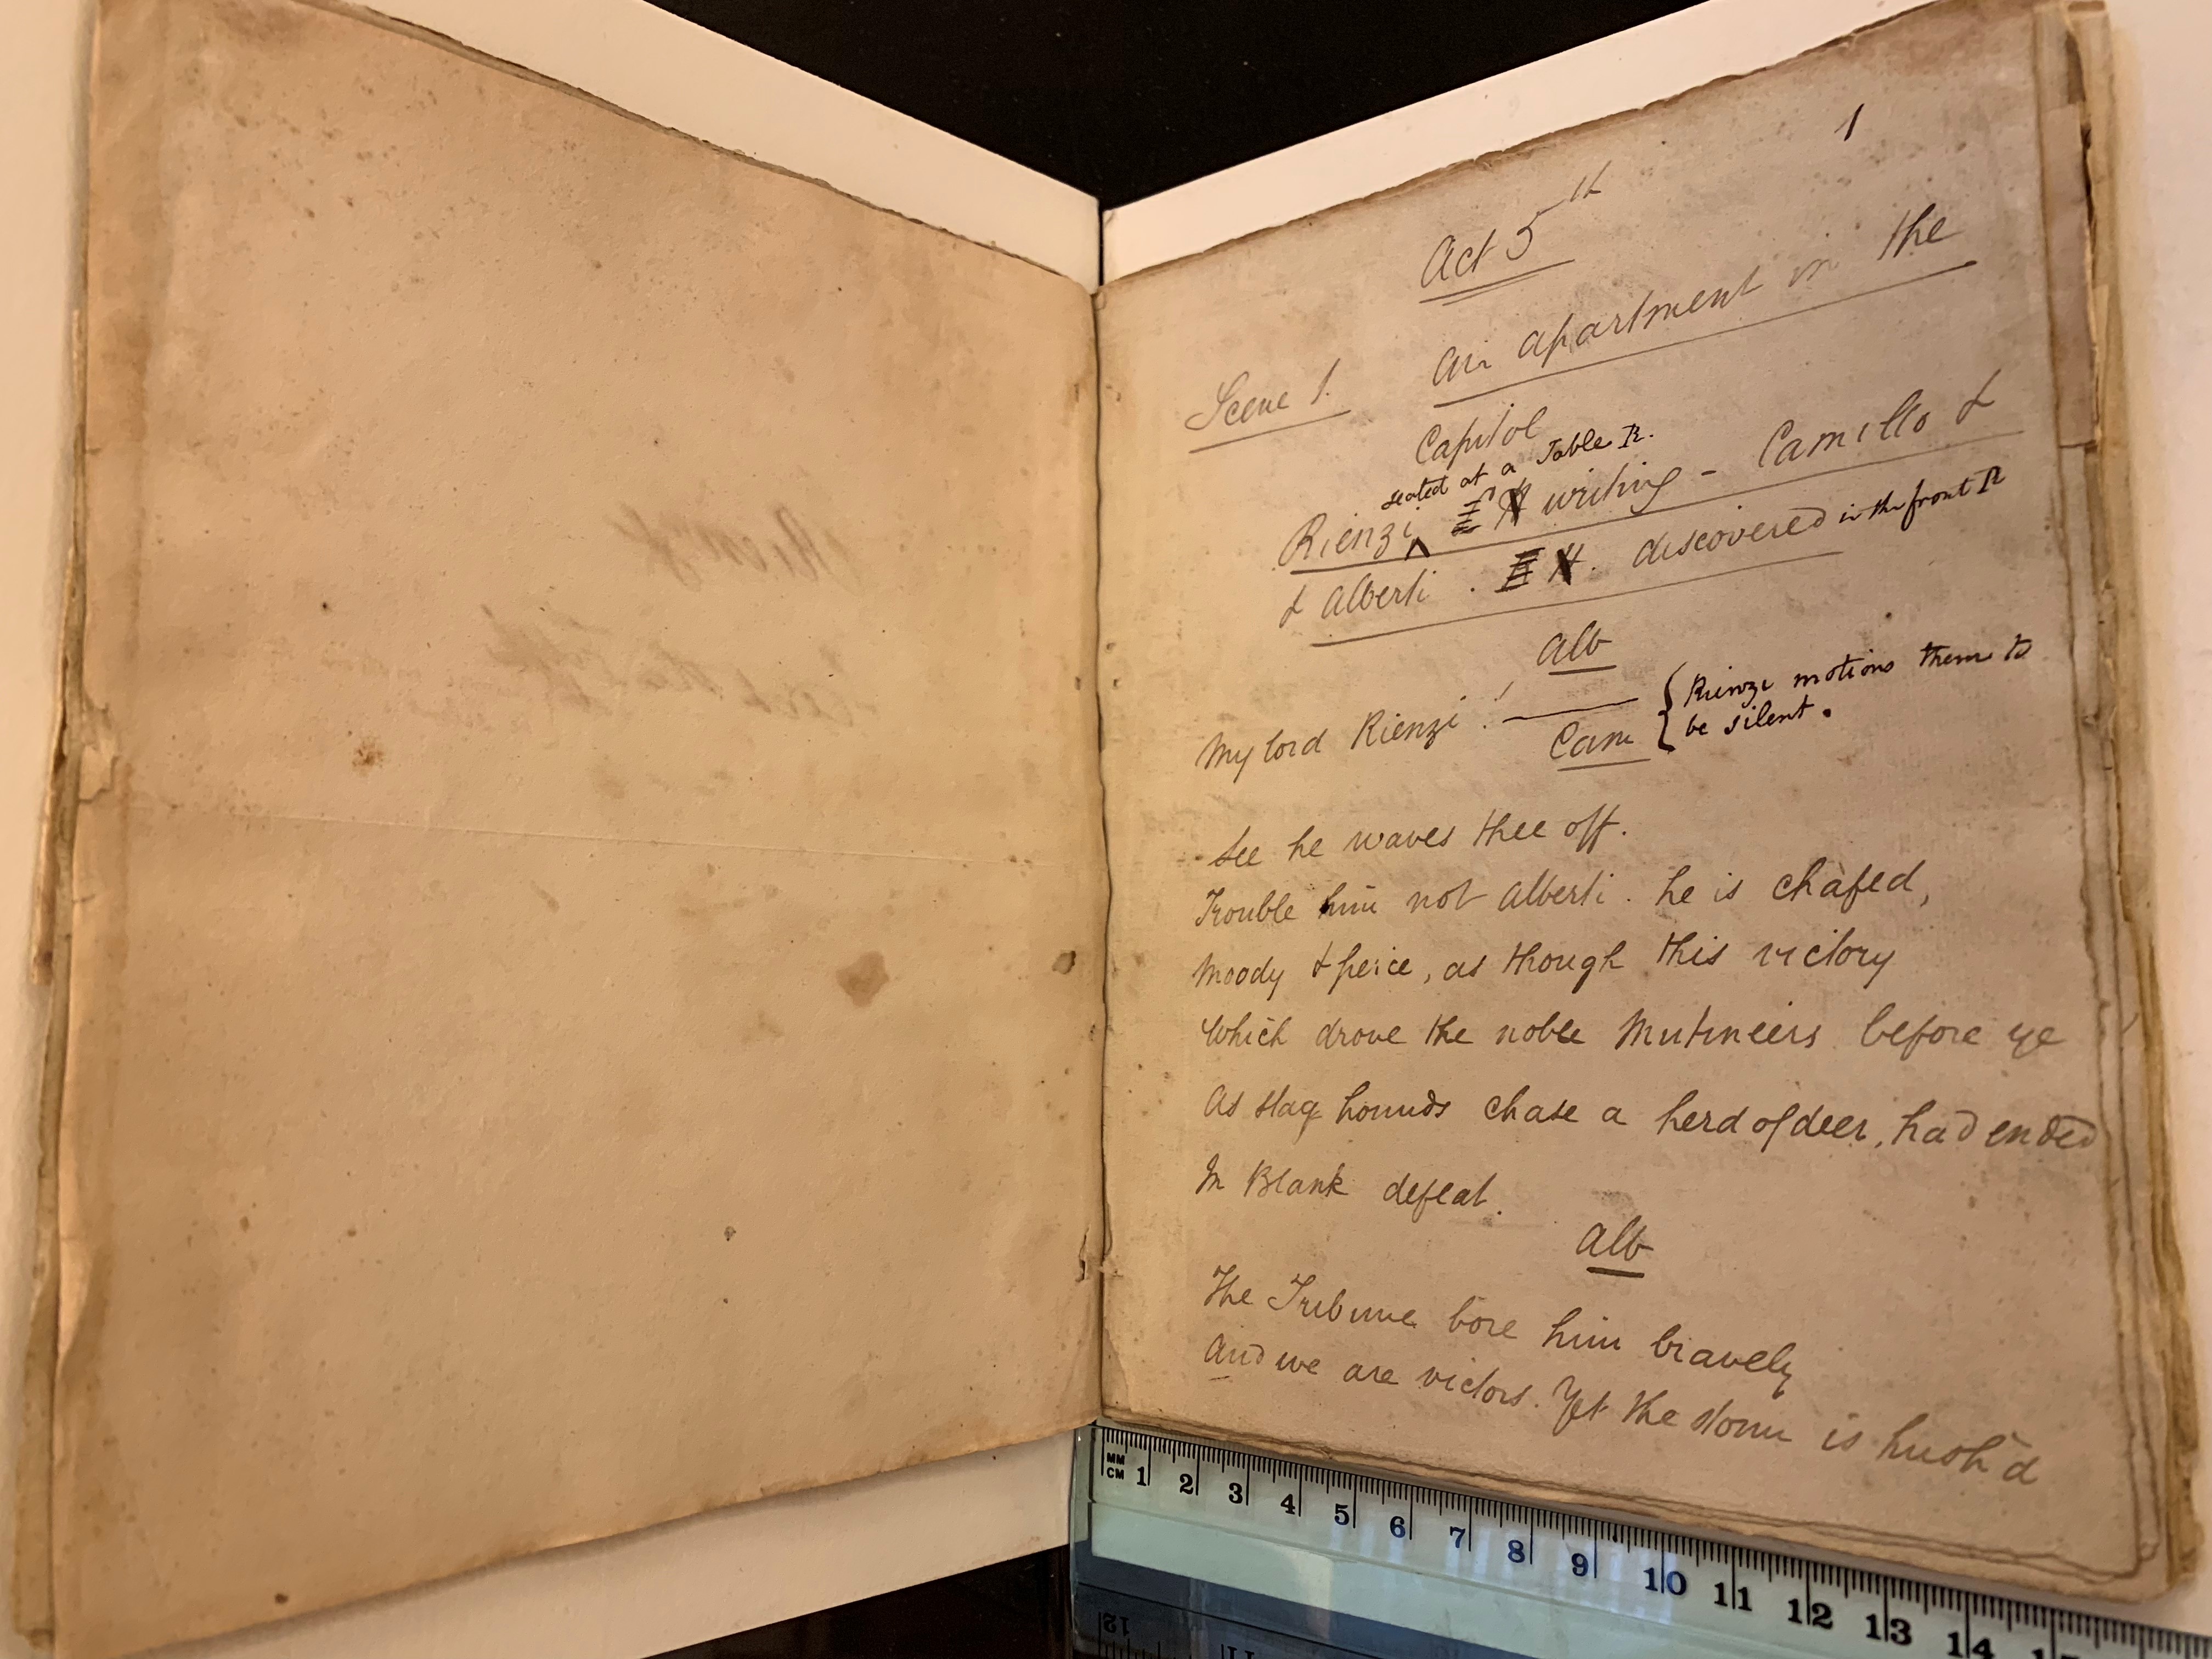 1
Act 5th
Scene 1. An apartment in the
Capitol
seated at a Table R.
Rienzi ^ writing - Camillo &
& Alberti . discovered in the front R
Alb
My lord Rienzi ! { Rienzi motions them to
be silent .
Cam
See he waves thee off.
Trouble him not Alberti . he is chafed,
Moody & feirce, as though this victory
Which drove the noble Mutineers before ye
As stag hounds chase a herd of deer, had ended
In Blank defeat.
Alb
The Tribune bore him bravely
And we are victors. Yet the storm is hush'd
MM
CM 1 2 3 4 5 6 7 8 9 10 11 12 13 14
12 11